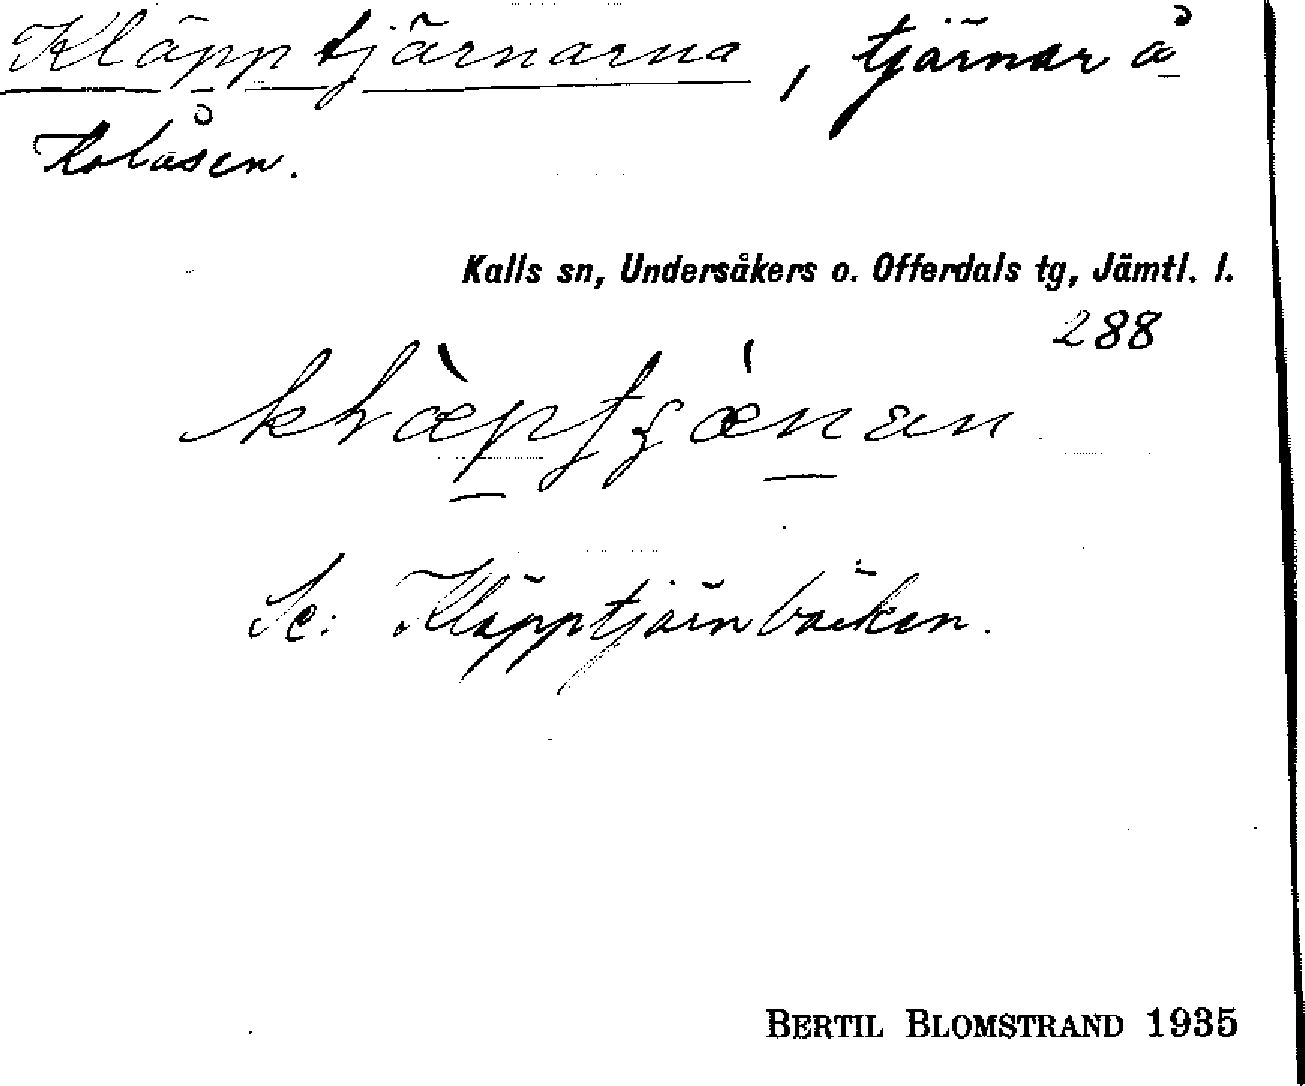 Kläpptjärnarna, tjärnar å
Kolåsen.
Kalls sn, Undersåkers o. Offerdals tg, Jämtl. l.
288
Se: Kläpptjärnbäcken.
BERTIL BLOMSTRAND 1935